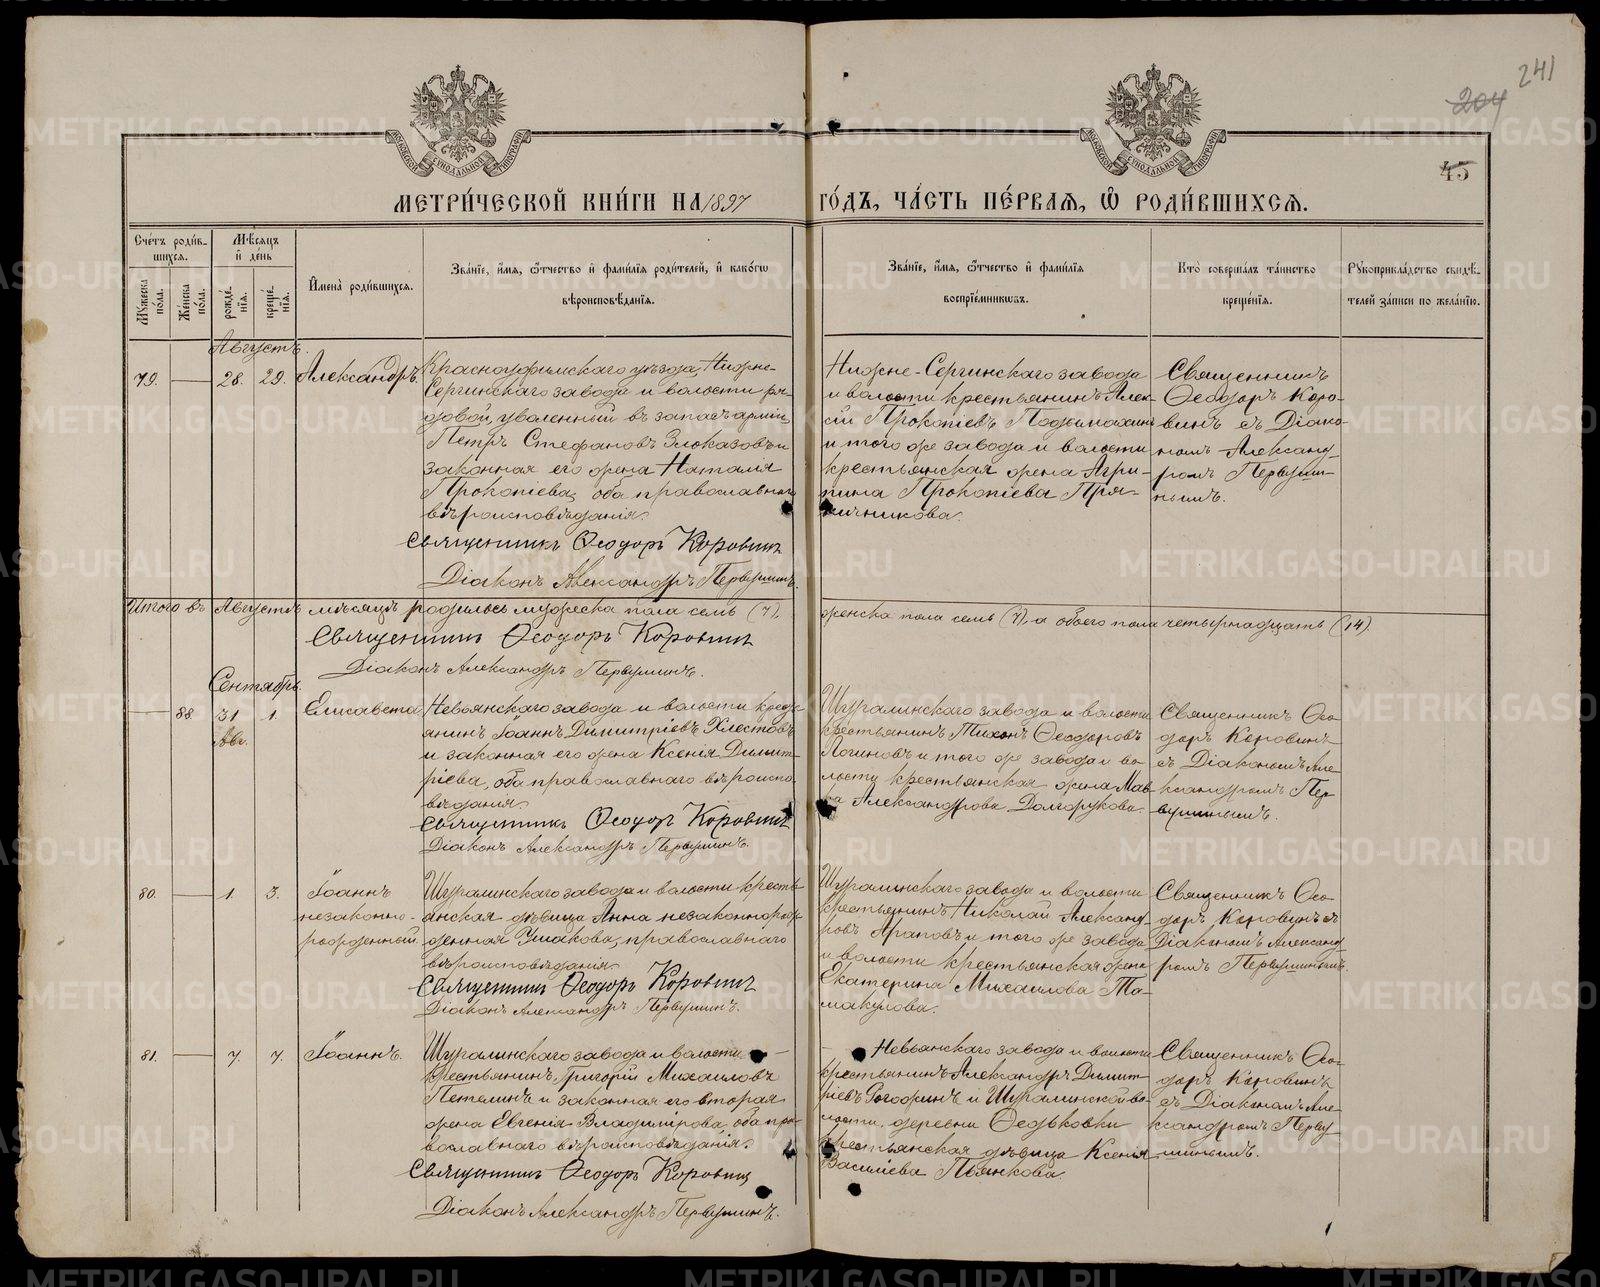 241
204
45
МЕТРИ́ЧЕСКОЙ КНИ́ГИ НА 1897 ГО́ДЪ, ЧА́СТЬ ПЕ́РВАЯ, Ѡ РОДИ́ВШИХСЯ.
Сче́тъ роди́вшихся.
Мꙋжеска пола.
Же́нска по́ла.
Мѣ́сяцъ и де́нь
рожде́нїя.
креще́нїя.
Имена̀ роди́вшихся.
Зва́нїе, и́мя, ѻ́тчество и фами́лїя роди́телей, и како́гѡ вѣроисповѣ́данїя.
Зва́нїе, и́мя, ѻ́тчество и фами́лїя воспрїе́мникѡвъ.
Кто̀ соверша́лъ та́инство креще́нїя.
Рꙋкоприкла́дство свидѣ́телей за́писи по жела́нїю.
Августъ.
79. 28. 29. Александръ.
Красноуфимскаго уѣзда, Нижне-
Сергинскаго завода и волости ря-
довой, уволенный въ запасъ арміи
Петръ Стефановъ Злоказовъ и
законная его жена Наталія
Прокопіева, оба православнаго
вѣроисповѣданія.
Священникъ Ѳеодоръ Коровинъ
Діаконъ Александръ Первушинъ.
Нижне-Сергинскаго завода
и волости крестьянинъ Алек-
сій Прокопіевъ
и того же завода и волости
крестьянская жена Агри-
пина Прокопіева Пря-
ничникова.
Священникъ
Ѳеодоръ Коро-
винъ съ Діако-
номъ Александ-
ромъ Первуши-
нымъ.
Итого въ Августѣ мѣсяцѣ родилось мужеска пола семь (7), женска пола семь (7), а обоего пола четырнадцать (14).
Священникъ Ѳеодоръ Коровинъ
Діаконъ Александръ Первушинъ.
Сентябрь.
88 31 Авг. 1. Елисавета
Невьянскаго завода и волости кресть-
янинъ Іоаннъ Димитріевъ Хлестовъ
и законная его жена Ксенія Димит-
ріева, оба православнаго вѣроиспо-
вѣданія.
Священникъ Ѳеодоръ Коровинъ
Діаконъ Александръ Первушинъ.
Шуралинскаго завода и волости
крестьянинъ Тихонъ Ѳеодоровъ
Логиновъ и того же завода и во-
лости крестьянская жена Мав-
ра Александрова Долгорукова.
Священникъ Ѳео-
доръ Коровинъ
съ Діакономъ Але-
ксандромъ Пер-
вушинымъ.
80. 1. 3. Іоаннъ
незаконно-
рожденный.
Шуралинскаго завода и волости кресть-
янская дѣвица Анна незаконнорож-
денная Ушакова, православнаго
вѣроисповѣданія.
Священникъ Ѳеодоръ Коровинъ
Діаконъ Александръ Первушинъ.
Шуралинскаго завода и волости
крестьянинъ Николай Александ-
ровъ Араповъ и того же завода
и волости крестьянская жена
Екатерина Михаилова То-
макулова.
Священникъ Ѳео-
доръ Коровинъ съ
Діакономъ Александ-
ромъ Первушинымъ.
81. 7. 7. Іоаннъ.
Шуралинскаго завода и волости
крестьянинъ Григорій Михаиловъ
Петелинъ и законная его вторая
жена Евгенія Владимірова, оба пра-
вославнаго вѣроисповѣданія.
Священникъ Ѳеодоръ Коровинъ
Діаконъ Александръ Первушинъ.
Невьянскаго завода и волости
крестьянинъ Александръ Димит-
ріевъ Рогожинъ и Шуралинской во-
лости, деревни Ѳедьковки
крестьянская дѣвица Ксенія
Василіева Пьянкова.
Священникъ Ѳео-
доръ Коровинъ
съ Діакономъ Але-
ксандромъ Перву-
шинымъ.
METRIKI.GASO-URAL.RU